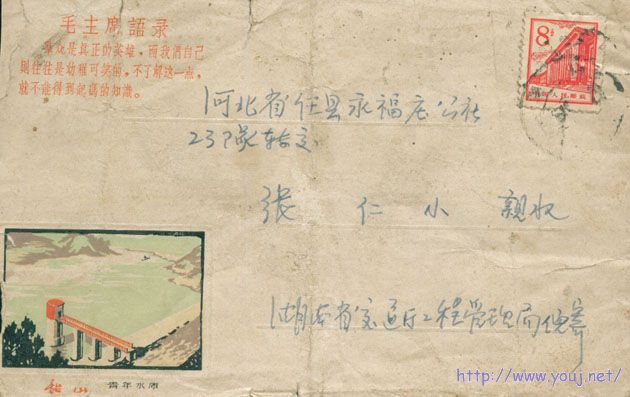 毛主席語录
羣众是真正的英雄，而我們自己
則往往是幼稚可笑的，不了解这一点，
就不能得到起碼的知識。
8分
中国人民邮政
河北省任县永福庄公社
23隊转交
张仁小 親收
湖南省交通厅工程管理局
韶山 青年水闸
http://www.youj.net/